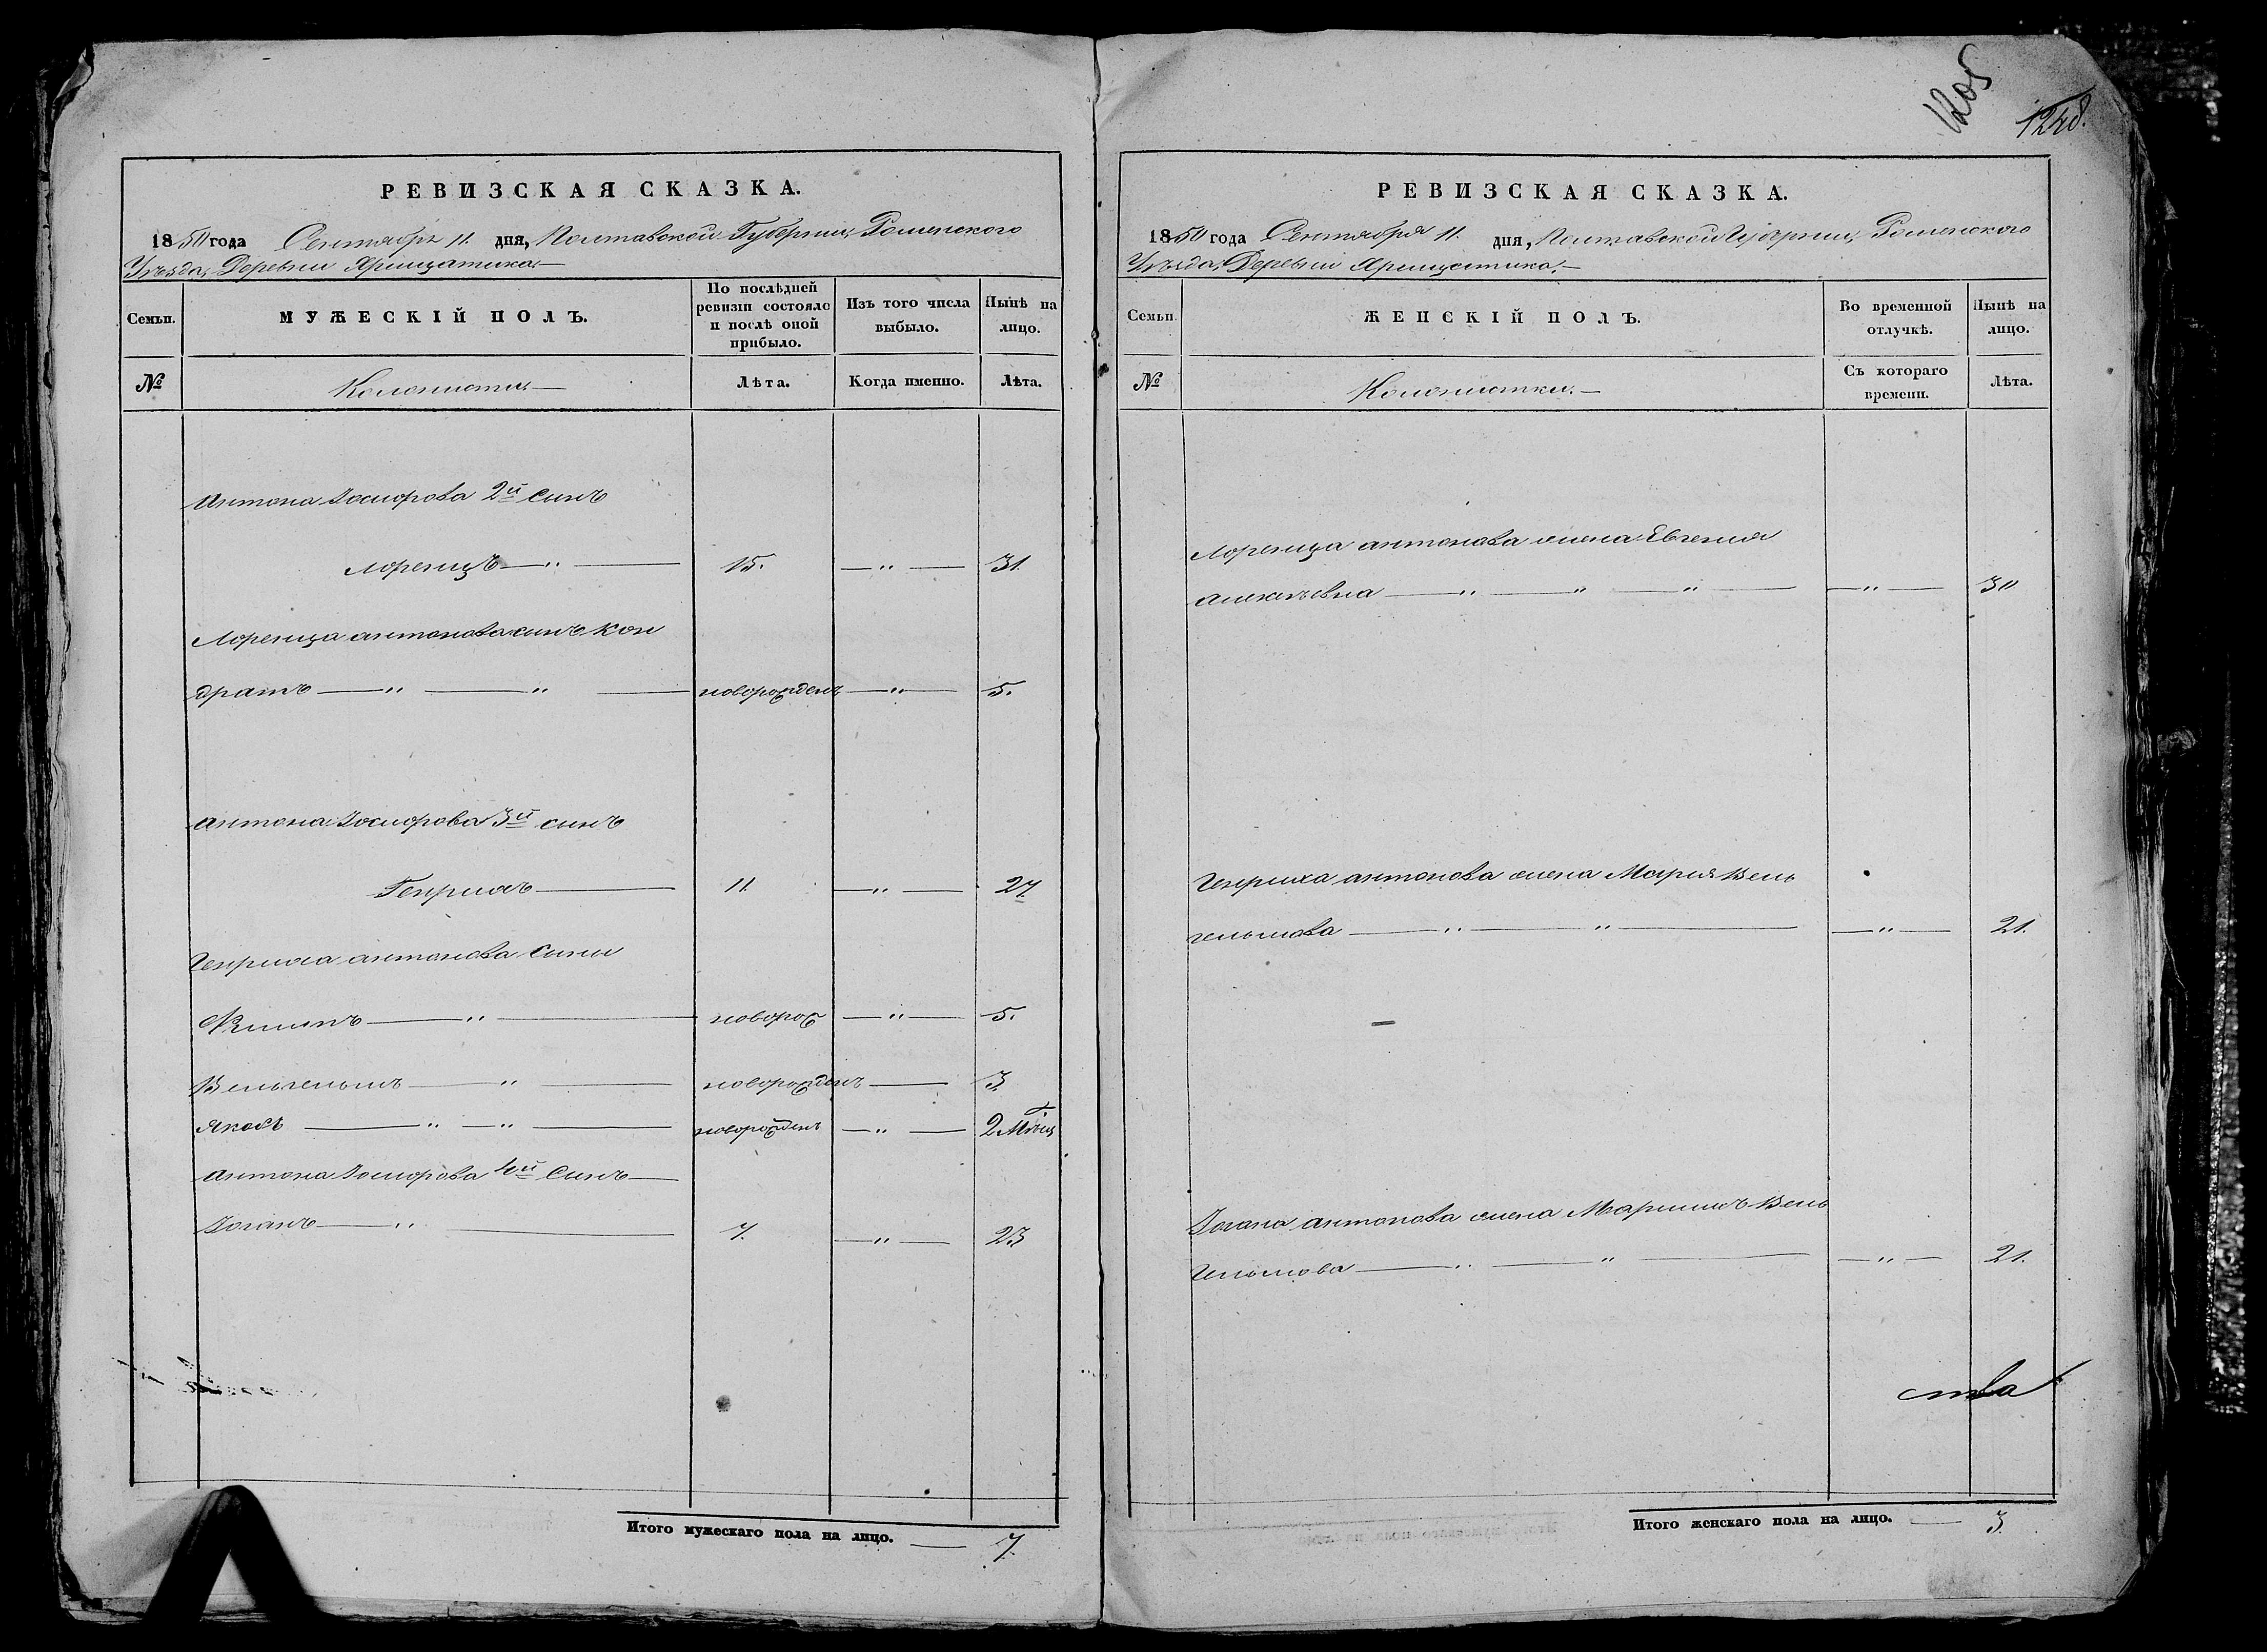 РЕВИЗСКАЯ СКАЗКА.
1850 года Сентября 11. дня, Полтавской Губернии, Роменского
Уѣзда, Деревни
Семьи.
МУЖЕСКІЙ ПОЛЪ.
По послѣдней ревизіи состояло и послѣ оной прибыло.
Изъ того числа выбыло.
Нынѣ на лицо.
№
Колонисты
Лѣта.
Когда именно.
Лѣта.
Антона Іосифова 2й Сынъ
Лоренцъ — „ — 15. — „ — 31.
Лоренца Антонова сынъ Кон
дратъ — „ — „ — новорожденъ — „ — 5.
Антона Іосифова 3й сынъ
Генрихъ — 11 — „ — 27.
Генриха Антонова Сыны
Филипъ — „ — новорож — „ — 5.
Вельгельмъ — „ — новорожденъ — 3.
Якобъ — „ — „ — новорожденъ — „ — 2 Мѣсяц
Антона Іосифова 4й Сынъ —
Іоганъ — „ — 7. — „ — 23
Итого мужескаго пола на лицо. — 7.
1205
1248.
РЕВИЗСКАЯ СКАЗКА.
1850 года Сентября 11. дня, Полтавской Губернии, Роменского
Уѣзда, Деревни
Семьи.
ЖЕНСКІЙ ПОЛЪ.
Во временной отлучкѣ.
Нынѣ на лицо.
№
Колонистки. —
Съ котораго времени.
Лѣта.
Лоренца Антонова жена Евгения
— „ — „ — „ — „ — 30
Генриха Антонова жена Мария Вель
гельмова — „ — „ — „ — 21.
Іогана Антонова жена Вель
гельмова — „ — „ — „ — 21.
ства
Итого женскаго пола на лицо. — 3.